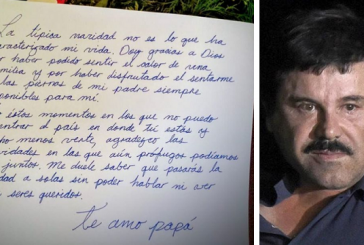 La típica navidad no es lo que ha
caracterizado mi vida. Doy gracias a Dios
haber podido sentir el calor de una
familia y por haber disfrutado el sentarme
las piernas de mi padre siempre
disponibles para mí.
estos momentos en los que no puedo
entrar al país en donde tú estás y
mucho menos verte, agradezco las
navidades en las que aún prófugos podíamos
juntos. Me duele saber que pasarás la
navidad a solas sin poder hablar ni ver
seres queridos.
te amo papá